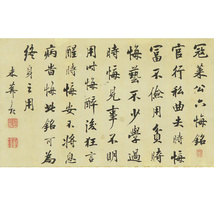 寇萊公六悔銘
官行私曲失時悔
富不儉用貧時
悔藝不少學過
時悔見事不
用時悔醉後狂言
醒時悔安不
病時悔此銘可為
終身之用